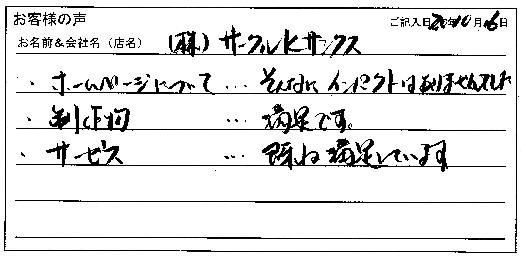 お客様の声
ご記入日 20年10月16日
お名前&会社名（店名） (株) サークルKサンクス
・ホームページについて … そんなに インパクトはありませんでした
・制作物 … 満足です。
・サービス … 概ね満足しています